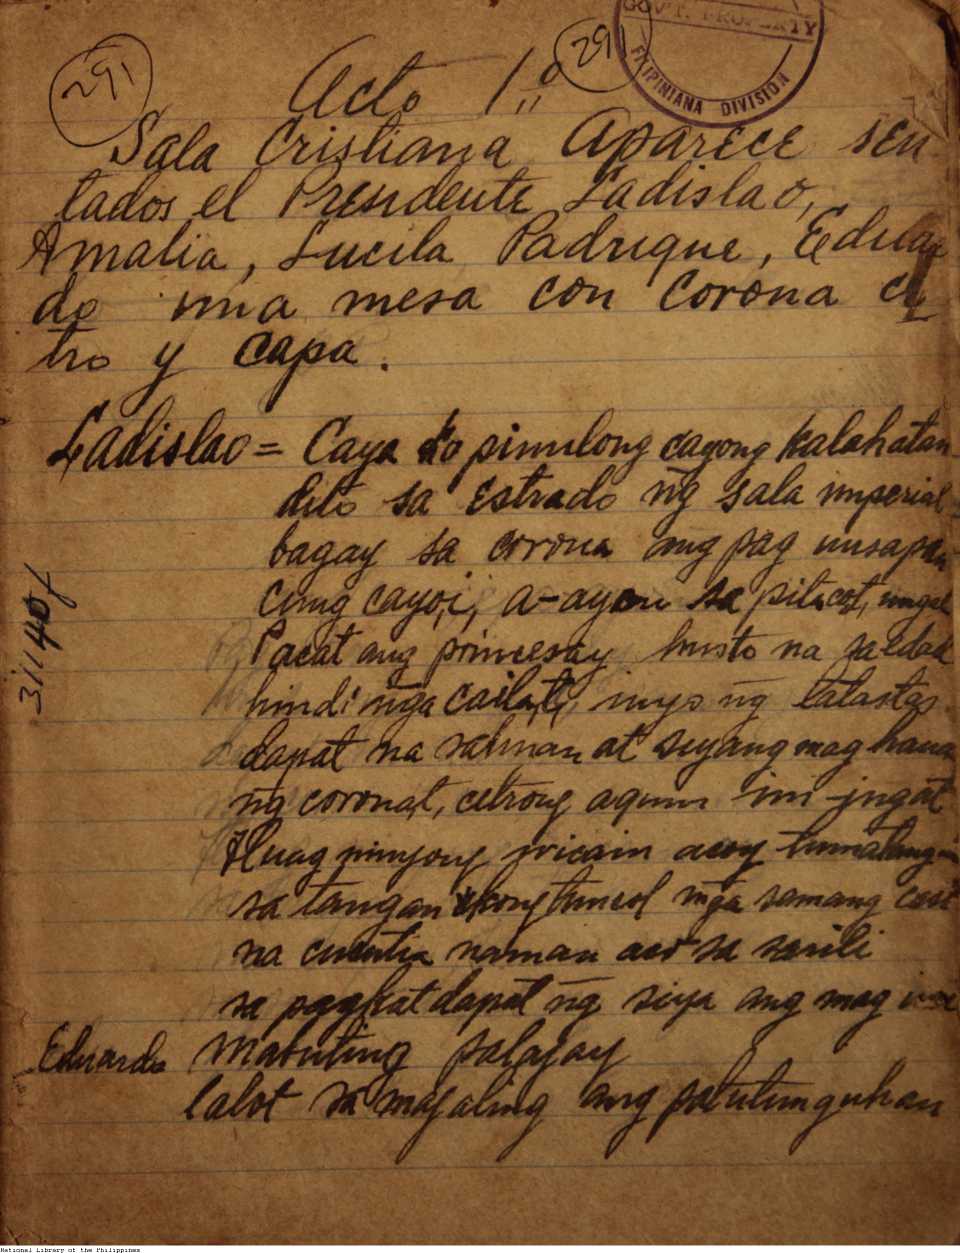 GOV'T. PROPERTY
FILIPINIANA DIVISION
291
291
Acto 1º
Sala Cristiana Aparece sen
tados el Presidente Ladislao,
Amalia, Lucila Padrique, Eduar
do una mesa con corona ce
tro y capa.
Ladislao = Caya ko pinulong cayong kalahatan
dito sa Estrado ng̃ sala imperial
bagay sa corona ang pag uusapan
cung cayo,i, a-ayon sa
Pacat ang princesay husto na sa edad
hindi ng̃a caila,t, inyo ng̃ talastas
dapat na naman at siyang mag hauac
ng̃ corona,t, cetrong aquin ini-ingat
Huag ninyong acoy tumatang
sa tangan kong tuncol mg̃a samang
na naman aco sa sarili
sa pagkat dapat ng̃ siya ang mag
Eduardo Mabuting palagay
lalot sa magaling ang patutunguhan
31140f
National Library of the Philippines